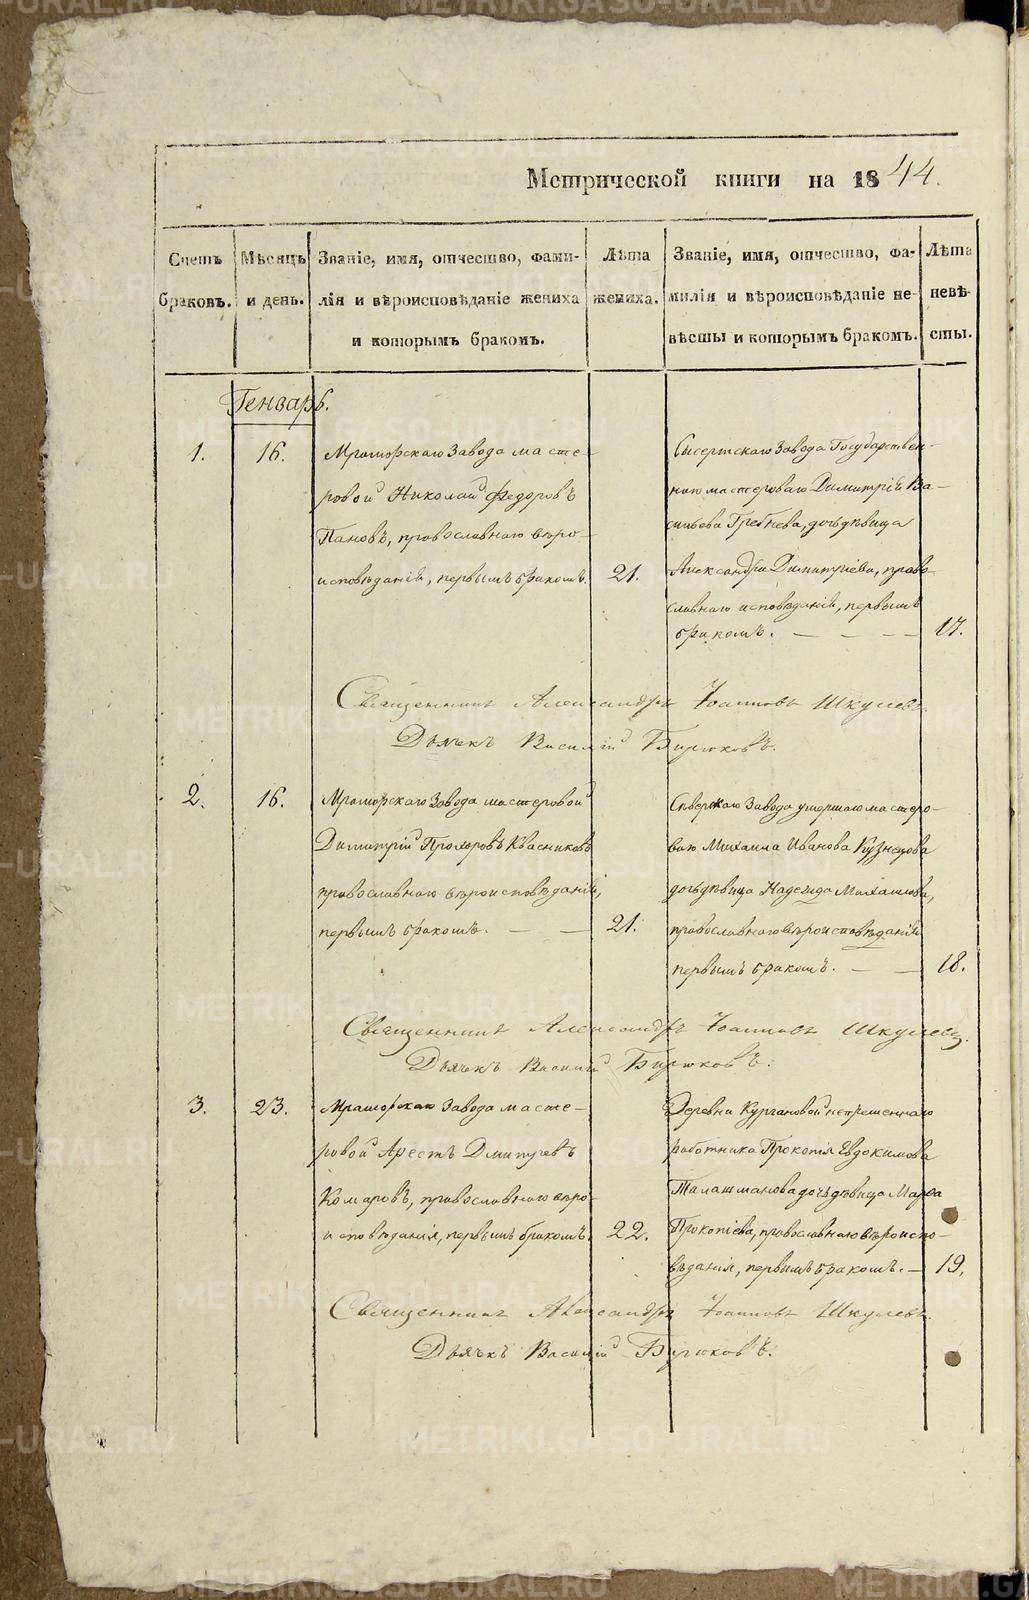 Метрической книги на 1844.
Счетъ браковъ.
Мѣсяцъ и день.
Званіе, имя, отчество, фами-
лія и вѣроисповѣданіе жениха
и которымъ бракомъ.
Лѣта жениха.
Званіе, имя, отчество, фа-
милія и вѣроисповѣданіе не-
вѣсты и которымъ бракомъ.
Лѣта невѣ-
сты.
Генварь.
1.
16.
Мраморскаго Завода масте-
ровой Николай Федоровъ
Пановъ, православнаго вѣро-
исповѣданія, первымъ бракомъ.
21.
Сысертскаго Завода Государствен-
наго мастероваго Димитрія Ва-
сильева Гребнева, дочь дѣвица
Александра Димитріева, право-
славнаго исповѣданія, первымъ
бракомъ.
17.
Священникъ Александръ Іоанновъ Шкулевъ.
Дьячекъ Василій Бирюковъ.
2.
16.
Мраморскаго Завода мастеровой
Димитрій Прохоровъ Квасниковъ
православнаго вѣроисповѣданія,
первымъ бракомъ.
21.
Сѣверскаго Завода умершаго мастеро-
ваго Михаила Иванова Кузнецова
дочь дѣвица Надежда Михаилова,
православнаго вѣроисповѣданія
первымъ бракомъ.
18.
Священникъ Александръ Іоанновъ Шкулевъ.
Дьячекъ Василій Бирюковъ.
3.
23.
Мраморскаго Завода масте-
ровой Арестъ Дмитревъ
Комаровъ, православнаго вѣро-
исповѣданія, первымъ бракомъ.
22.
Деревни Кургановой непременнаго
работника Прокопія Евдокимова
Талашманова дочь дѣвица Марѳа
Прокопіева, православнаго вѣроиспо-
вѣданія, первымъ бракомъ.
19.
Священникъ Александръ Іоанновъ Шкулевъ.
Дьячекъ Василій Бирюковъ.
METRIKI.GASO-URAL.RU